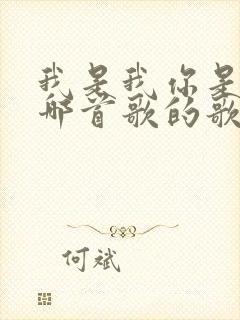 我是我你是
哪首歌的歌
何斌